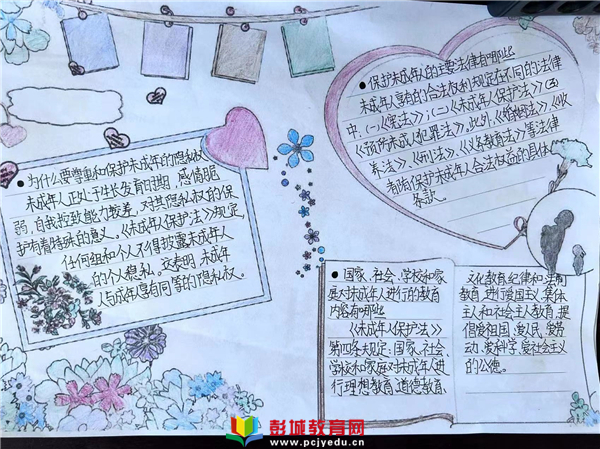 为什么要尊重和保护未成年的隐私权
未成年人正处于生长发育时期,感情脆
弱,自我控致能力较差,对其隐私权的保
护有着特殊的意义。《未成年人保护法》规定,
任何组和个人不得披露未成年人
的个人隐私。这表明,未成年
人与成年人享有同等的隐私权。
保护未成年人的主要法律有哪些
未成年人享有的合法权利规定在不同的法律
中,(一)《宪法》;(二)《未成年人保护法》(三)
《预防未成人犯罪法》。此外,《婚姻法》、《收
养法》、《刑法》、《义务教育法》等法律
都有保护未成年人合法权益的具体
条款。
国家、社会、学校和家
庭对未成年人进行的教育
内容有哪些
《未成年人保护法》
第四条规定:国家、社会、
学校和家庭对未成年人进
行理想教育、道德教育、
文化教育、纪律和法制
教育,进行爱国主义、集体
主人和社会主人教育,提
倡爱祖国、爱人民、爱劳
动、爱科学、爱社会主义
的公德。
彭城教育网
www.pcjyedu.cn